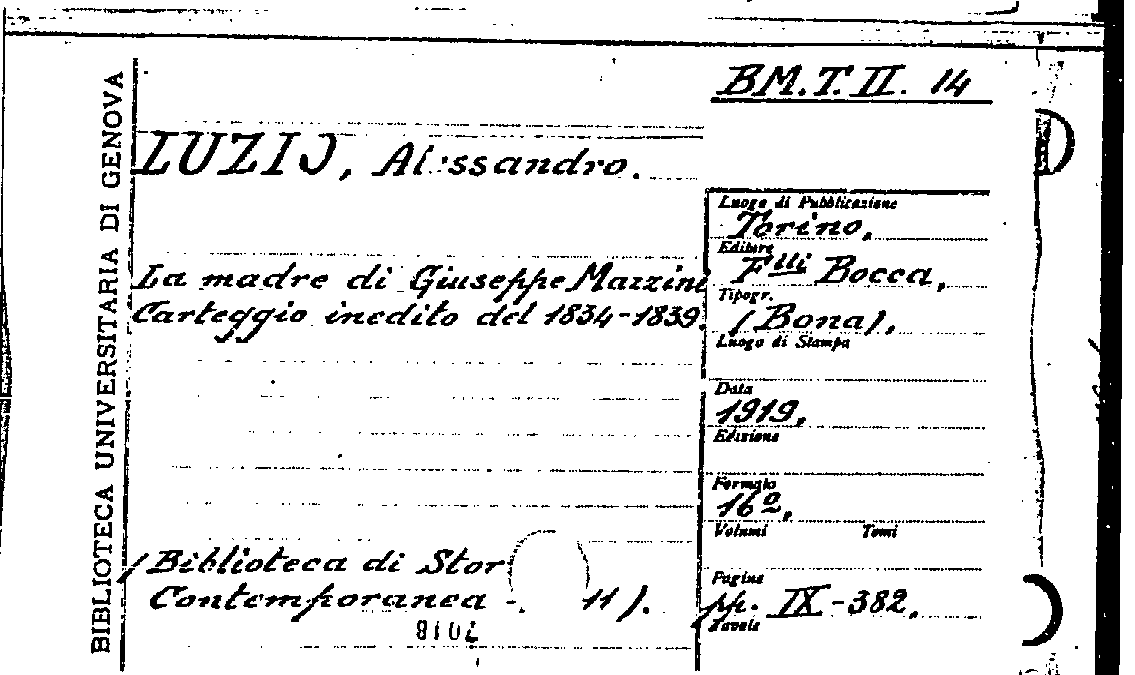 BM.T.II. 14
BIBLIOTECA UNIVERSITARIA DI GENOVA
LUZIO, Alessandro.
La madre di Giuseppe Mazzini
Carteggio inedito del 1834-1839.
(Biblioteca di Stor
Contemporanea - 11).
Luogo di Pubblicazione
Torino,
Editore
F.lli Bocca,
Tipogr.
(Bona),
Luogo di Stampa
Data
1919,
Edizione
Formato
16º,
Volumi Tomi
Pagine
pp. IX-382,
Tavole